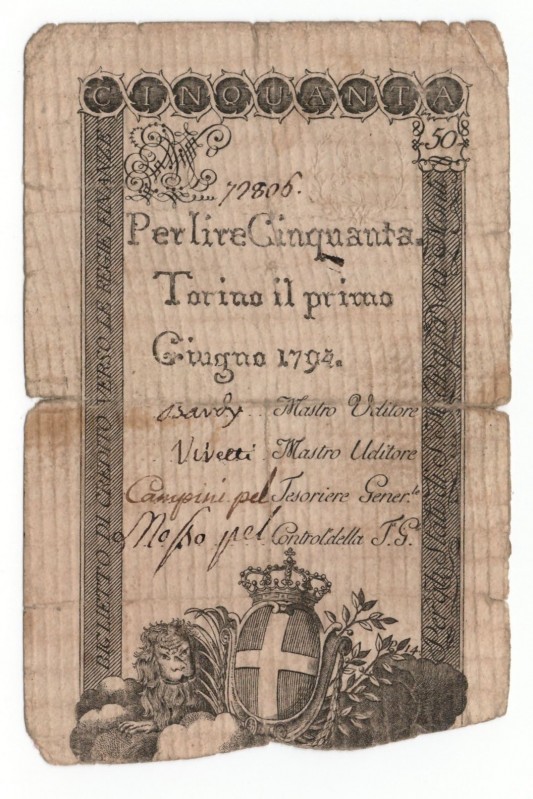 CINQUANTA
50
72806.
Per lire Cinquanta.
Torino il primo
Giugno 1794.
Mastro Uditore
Vivetti Mastro Uditore
Campini pel Tesoriere Gener.le
Mosso pel Control. della T. G.
BIGLIETTO DI CREDITO VERSO LE REGIE FINANZE
Per gli Stati di S. M.
di qua da Monti